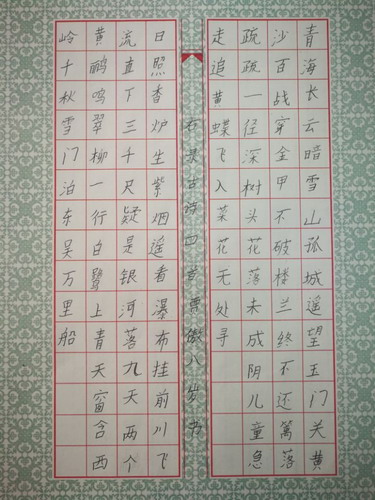 青海长云暗雪山孤城遥望玉门关黄
沙百战穿金甲不破楼兰终不还篱落
疏疏一径深树头花落未成阴儿童急
走追黄蝶飞入菜花无处寻
右录古诗四首傲八岁书
日照香炉生紫烟遥看瀑布挂前川飞
流直下三千尺疑是银河落九天两个
黄鹂鸣翠柳一行白鹭上青天窗含西
岭千秋雪门泊东吴万里船